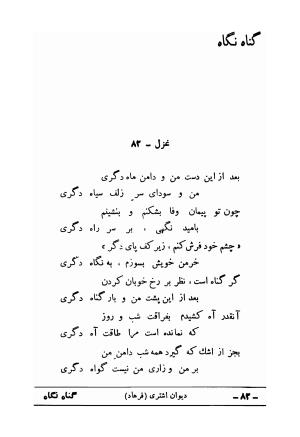 گناه نگاه
غزل - ۸۲
بعد از این دست من و دامن ماه دگری
من و سودای سر زلف سیاه دگری
چون تو پیمان وفا بشکنم و بنشینم
بامید نگهی ، بر سر راه دگری
« چشم خود فرش کنم ، زیر کف پای دگر »
خرمن خویش بسوزم ، به نگاه دگری
گر گناه است ، نظر بر رخ خوبان کردن
بعد از این پشت من و بار گناه دگری
آنقدر آه کشیدم بفراقت شب و روز
که نمانده است مرا طاقت آه دگری
بجز از اشک که گیرد همه شب دامن من
بر من و زاری من نیست گواه دگری
- ۸۲ -
دیوان اشتری (فرهاد)
گناه نگاه